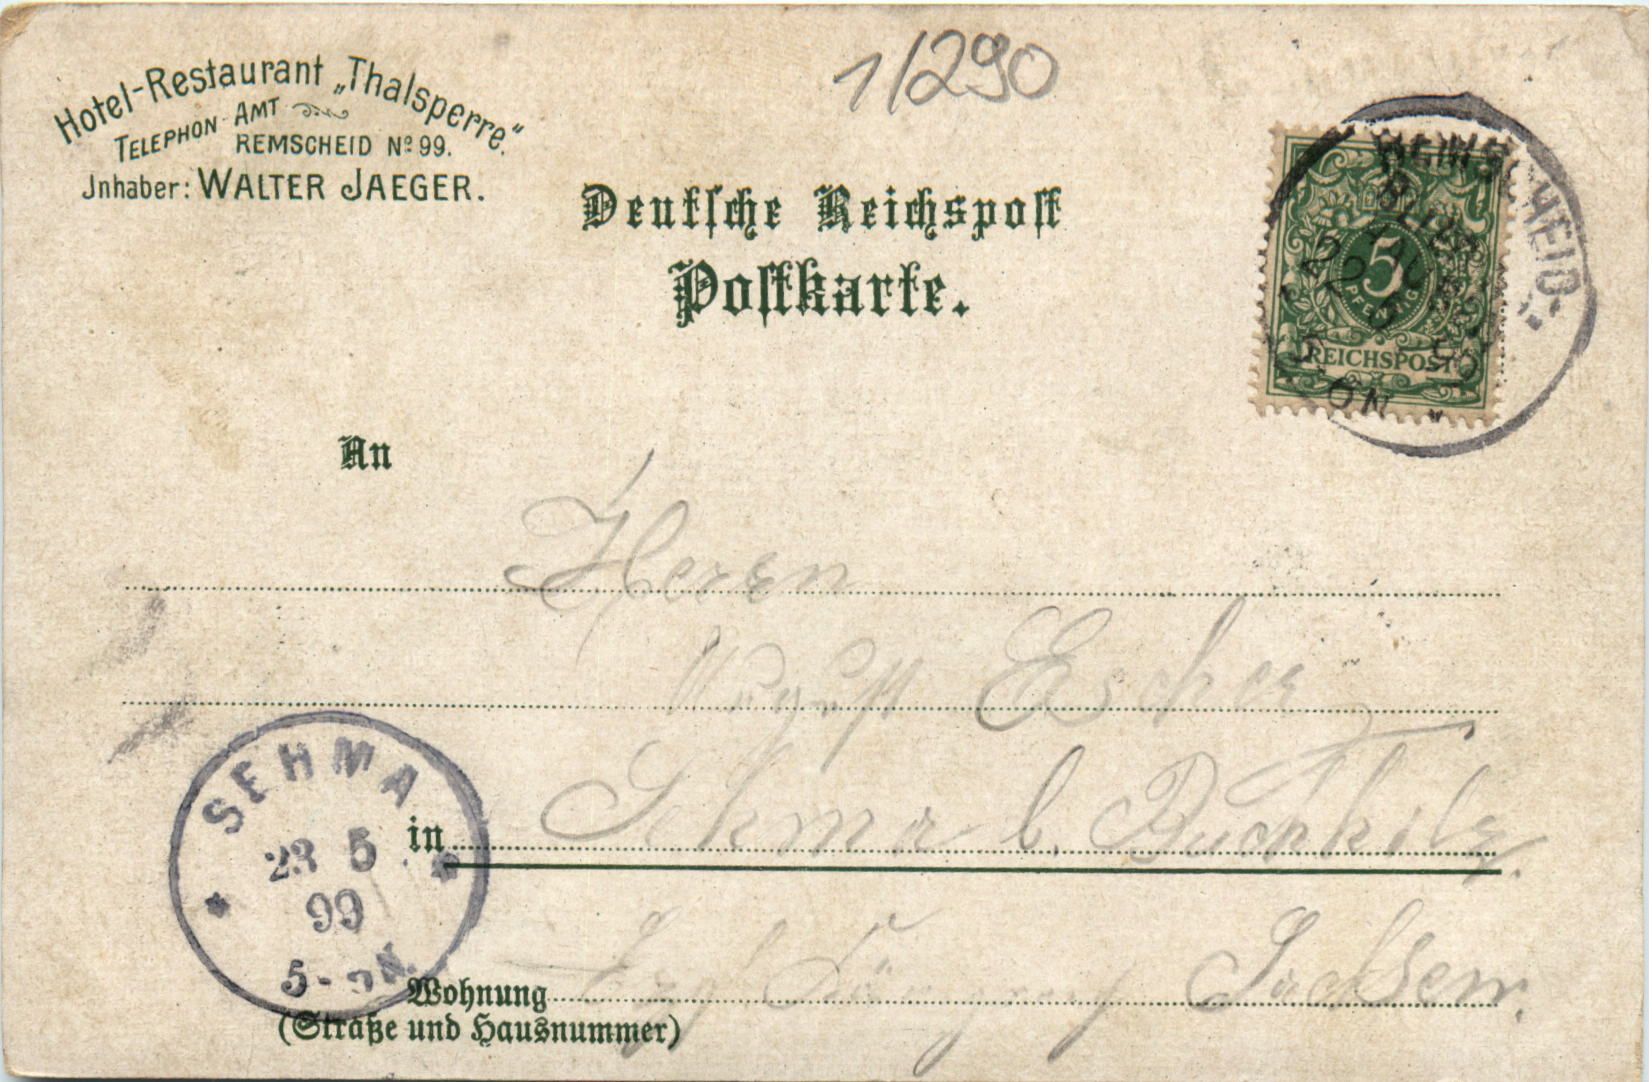 1/290
Hotel-Restaurant „Thalsperre."
TELEPHON-AMT
REMSCHEID Nº 99.
Jnhaber: WALTER JAEGER.
Deutsche Reichspost
Postkarte.
REMSCHEID-
22 5 99
5
PFENNIG
REICHSPOST
5-6 N
An
Herrn
August Escher
in Sehma b. Buchholz
SEHMA
23 5
99
5- N.
Wohnung Erzg Sachsen.
(Straße und Hausnummer)